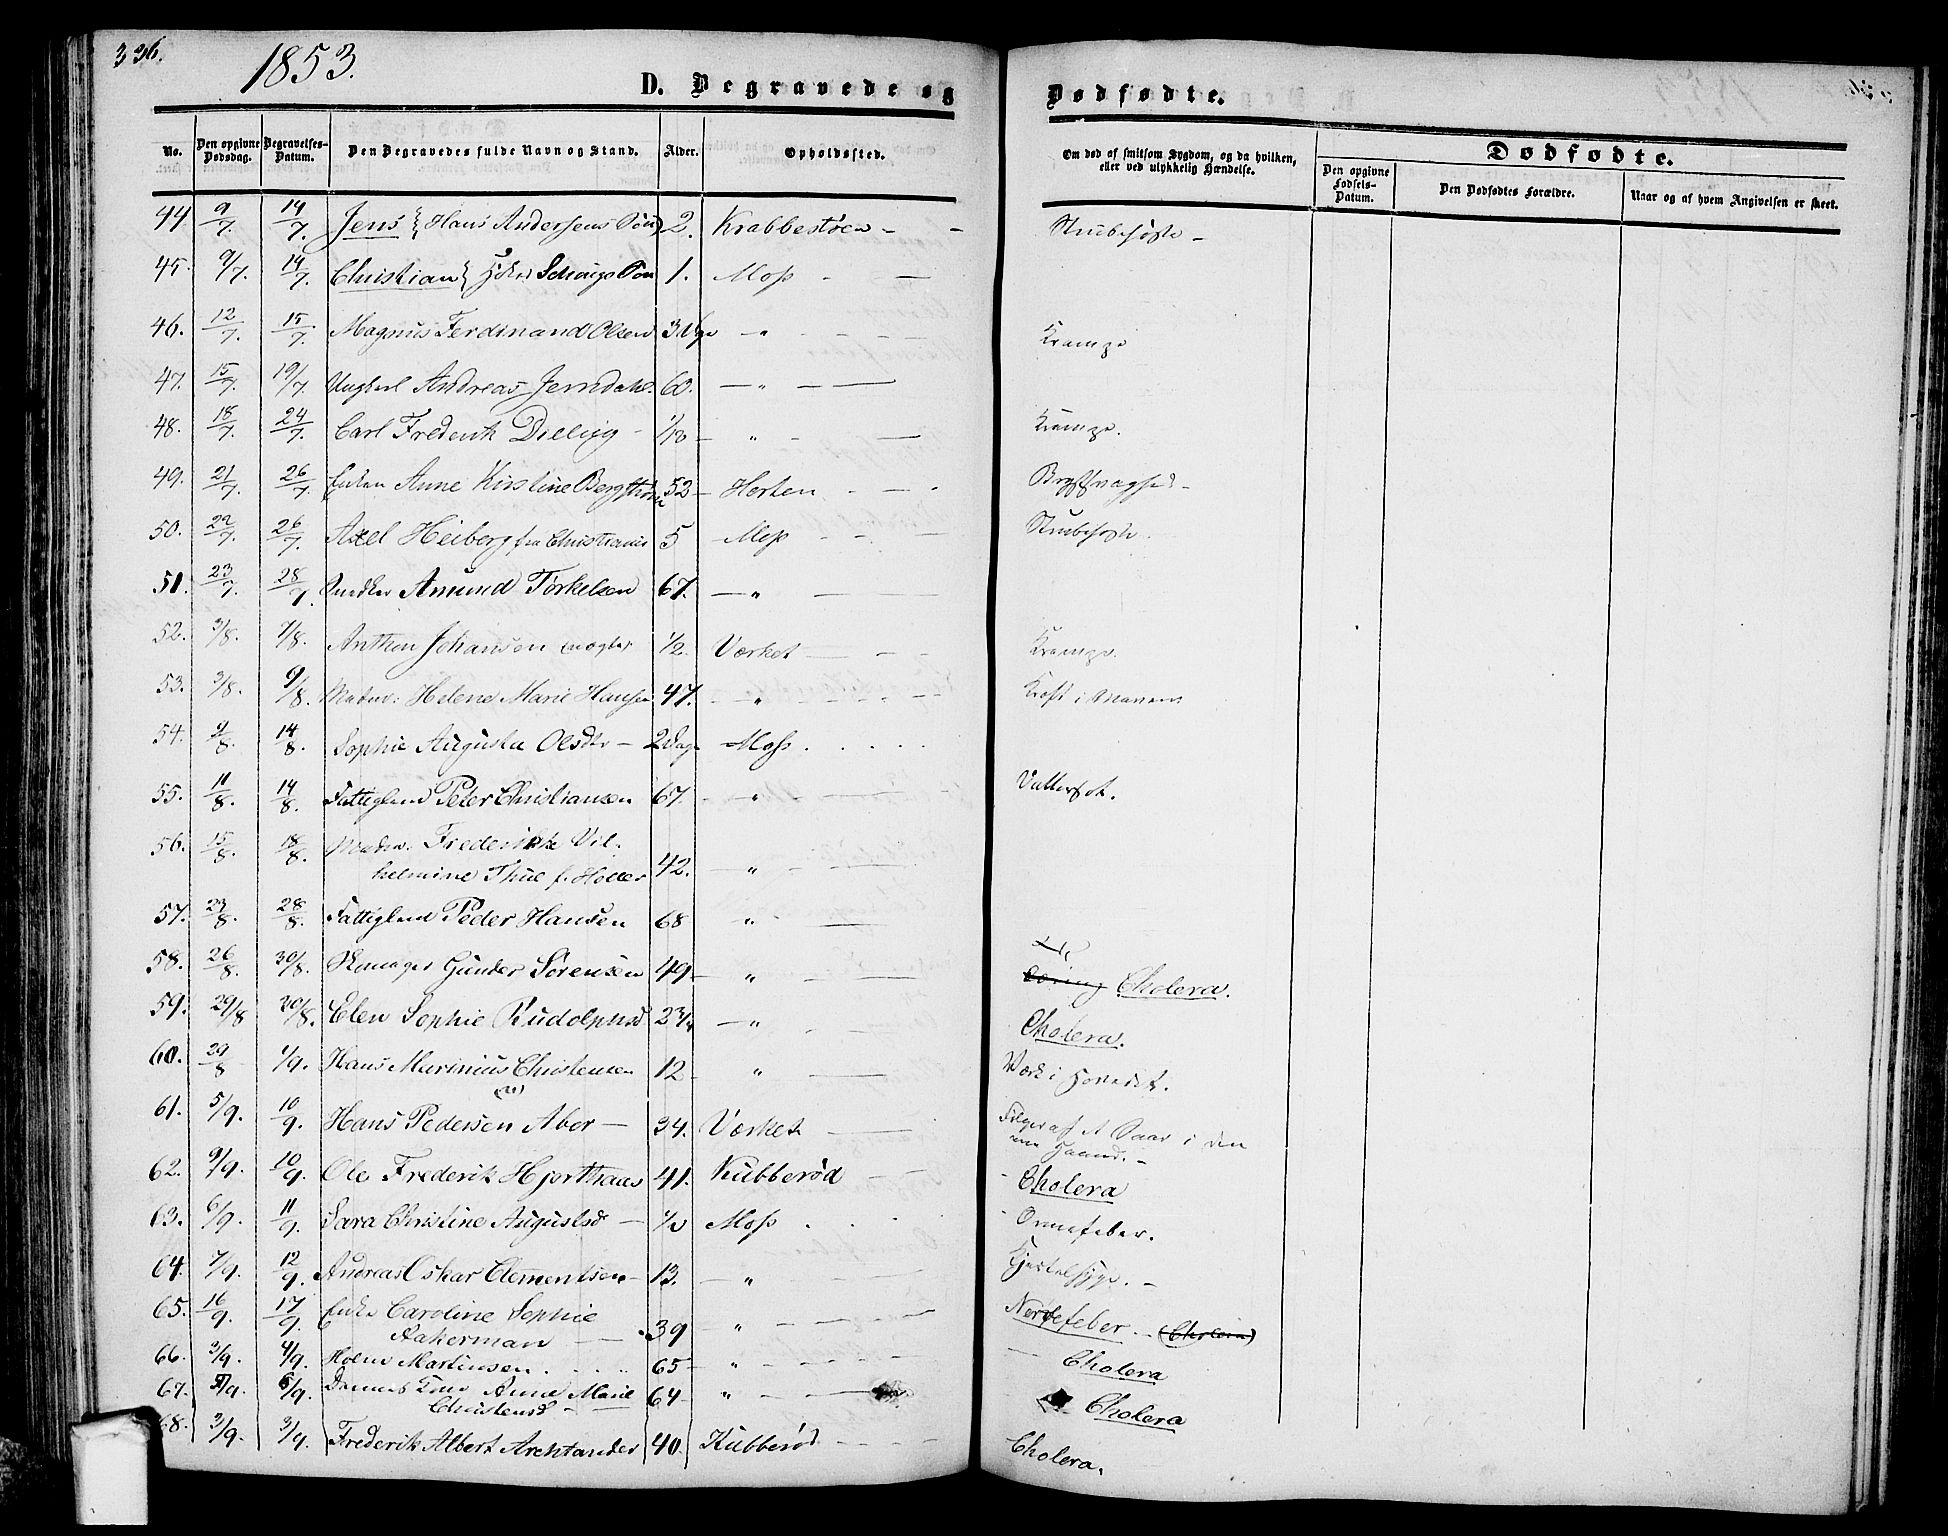 336.
1853.
D. Begravede og Dødfødte.
No. Den opgivne Dødsdag. Begravelses-Datum. Den Begravedes fulde Navn og Stand. Alder. Opholdssted. Om død af smitsom Sygdom, og da hvilken, eller ved ulykkelig Hændelse. Dødfødte.
Den opgivne Fødsels-Datum. Den Dødfødtes Forældre. Naar og af hvem Angivelsen er skeet.
44. 9/7 14/7 Jens Hans Andersens Søn 2. Krabbestøen - Strubehoste -
45. 9/7. 14/7. Christian Søn 1. Moss -
46. 12/7. 15/7. Magnus Ferdinand Olsen 3 Uger " Krampe
47. 15/7. 19/7 Ungkarl Andreas Jerndahl 60. "
48. 18/7. 24/7. Carl Frederik - 1/2 " Krampe.
49. 21/7. 26/7. Enken Anne Kirstine 52 - Horten - Brystsvaghed -
50. 22/7. 26/7. Axel Heiberg fra Christiania 5 Moss - Strubehoste.
51. 23/7. 28/7. Snedker Amund Torkelsen 67. "
52. 3/8. 7/8. Anthon Johansen 1/2. Værket - Krampe.
53. 3/8. 9/8. Madm: Helene Marie Hansen 47. " Kræft i Maven
54. 9/8. 14/8. Sophie Augusta Olsdtr - 2 Dage Moss.
55. 11/8. 14/8. Fattiglem Peter Christiansen 67. " Vattersot.
56. 15/8. 18/8. Madm. Frederikke Vil-
helmine Thue f. Høller 42. "
57. 23/8. 28/8. Fattiglem Peder Hansen 68 "
58. 26/8. 30/8. Skomager Gunder Sørensen 49 - " Cholera.
59. 29/8 30/8. Elen Sophie Rudolphsd 2 3/4 " Cholera.
60. 29/8 1/9. Hans Marinius Christensen 12 " Værk i Hovedet.
61. 5/9. 10/9. Hans Pedersen Abor - 34. Værket - Følger af et Saar i den
ene Haand. -
62. 9/9. 10/9. Ole Frederik Hjorthaus 41. Kubberød - Cholera
63. 6/9. 11/9. Sara Christine Augustsd - 1/2 Moss. - Ormefeber.
64. 7/9. 12/9. Andreas Oskar Clementsen - 13. " Kjertelsyge. -
65. 16/9. 17/9. Enke Caroline Sophie
Aakerman 39 " Nervefeber - (Cholera)
66. 3/9. 4/9. Martinsen. 65 - " Cholera
67. 5/9. 6/9. Anne Marie
Christensd - 64 - " Cholera
68. 3/9. 3/9. Frederik Albert Arentander 40. Kubberød - Cholera.